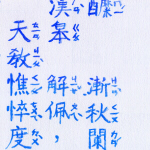 醾 漸秋闌
漢皋解佩，
天教憔悴度